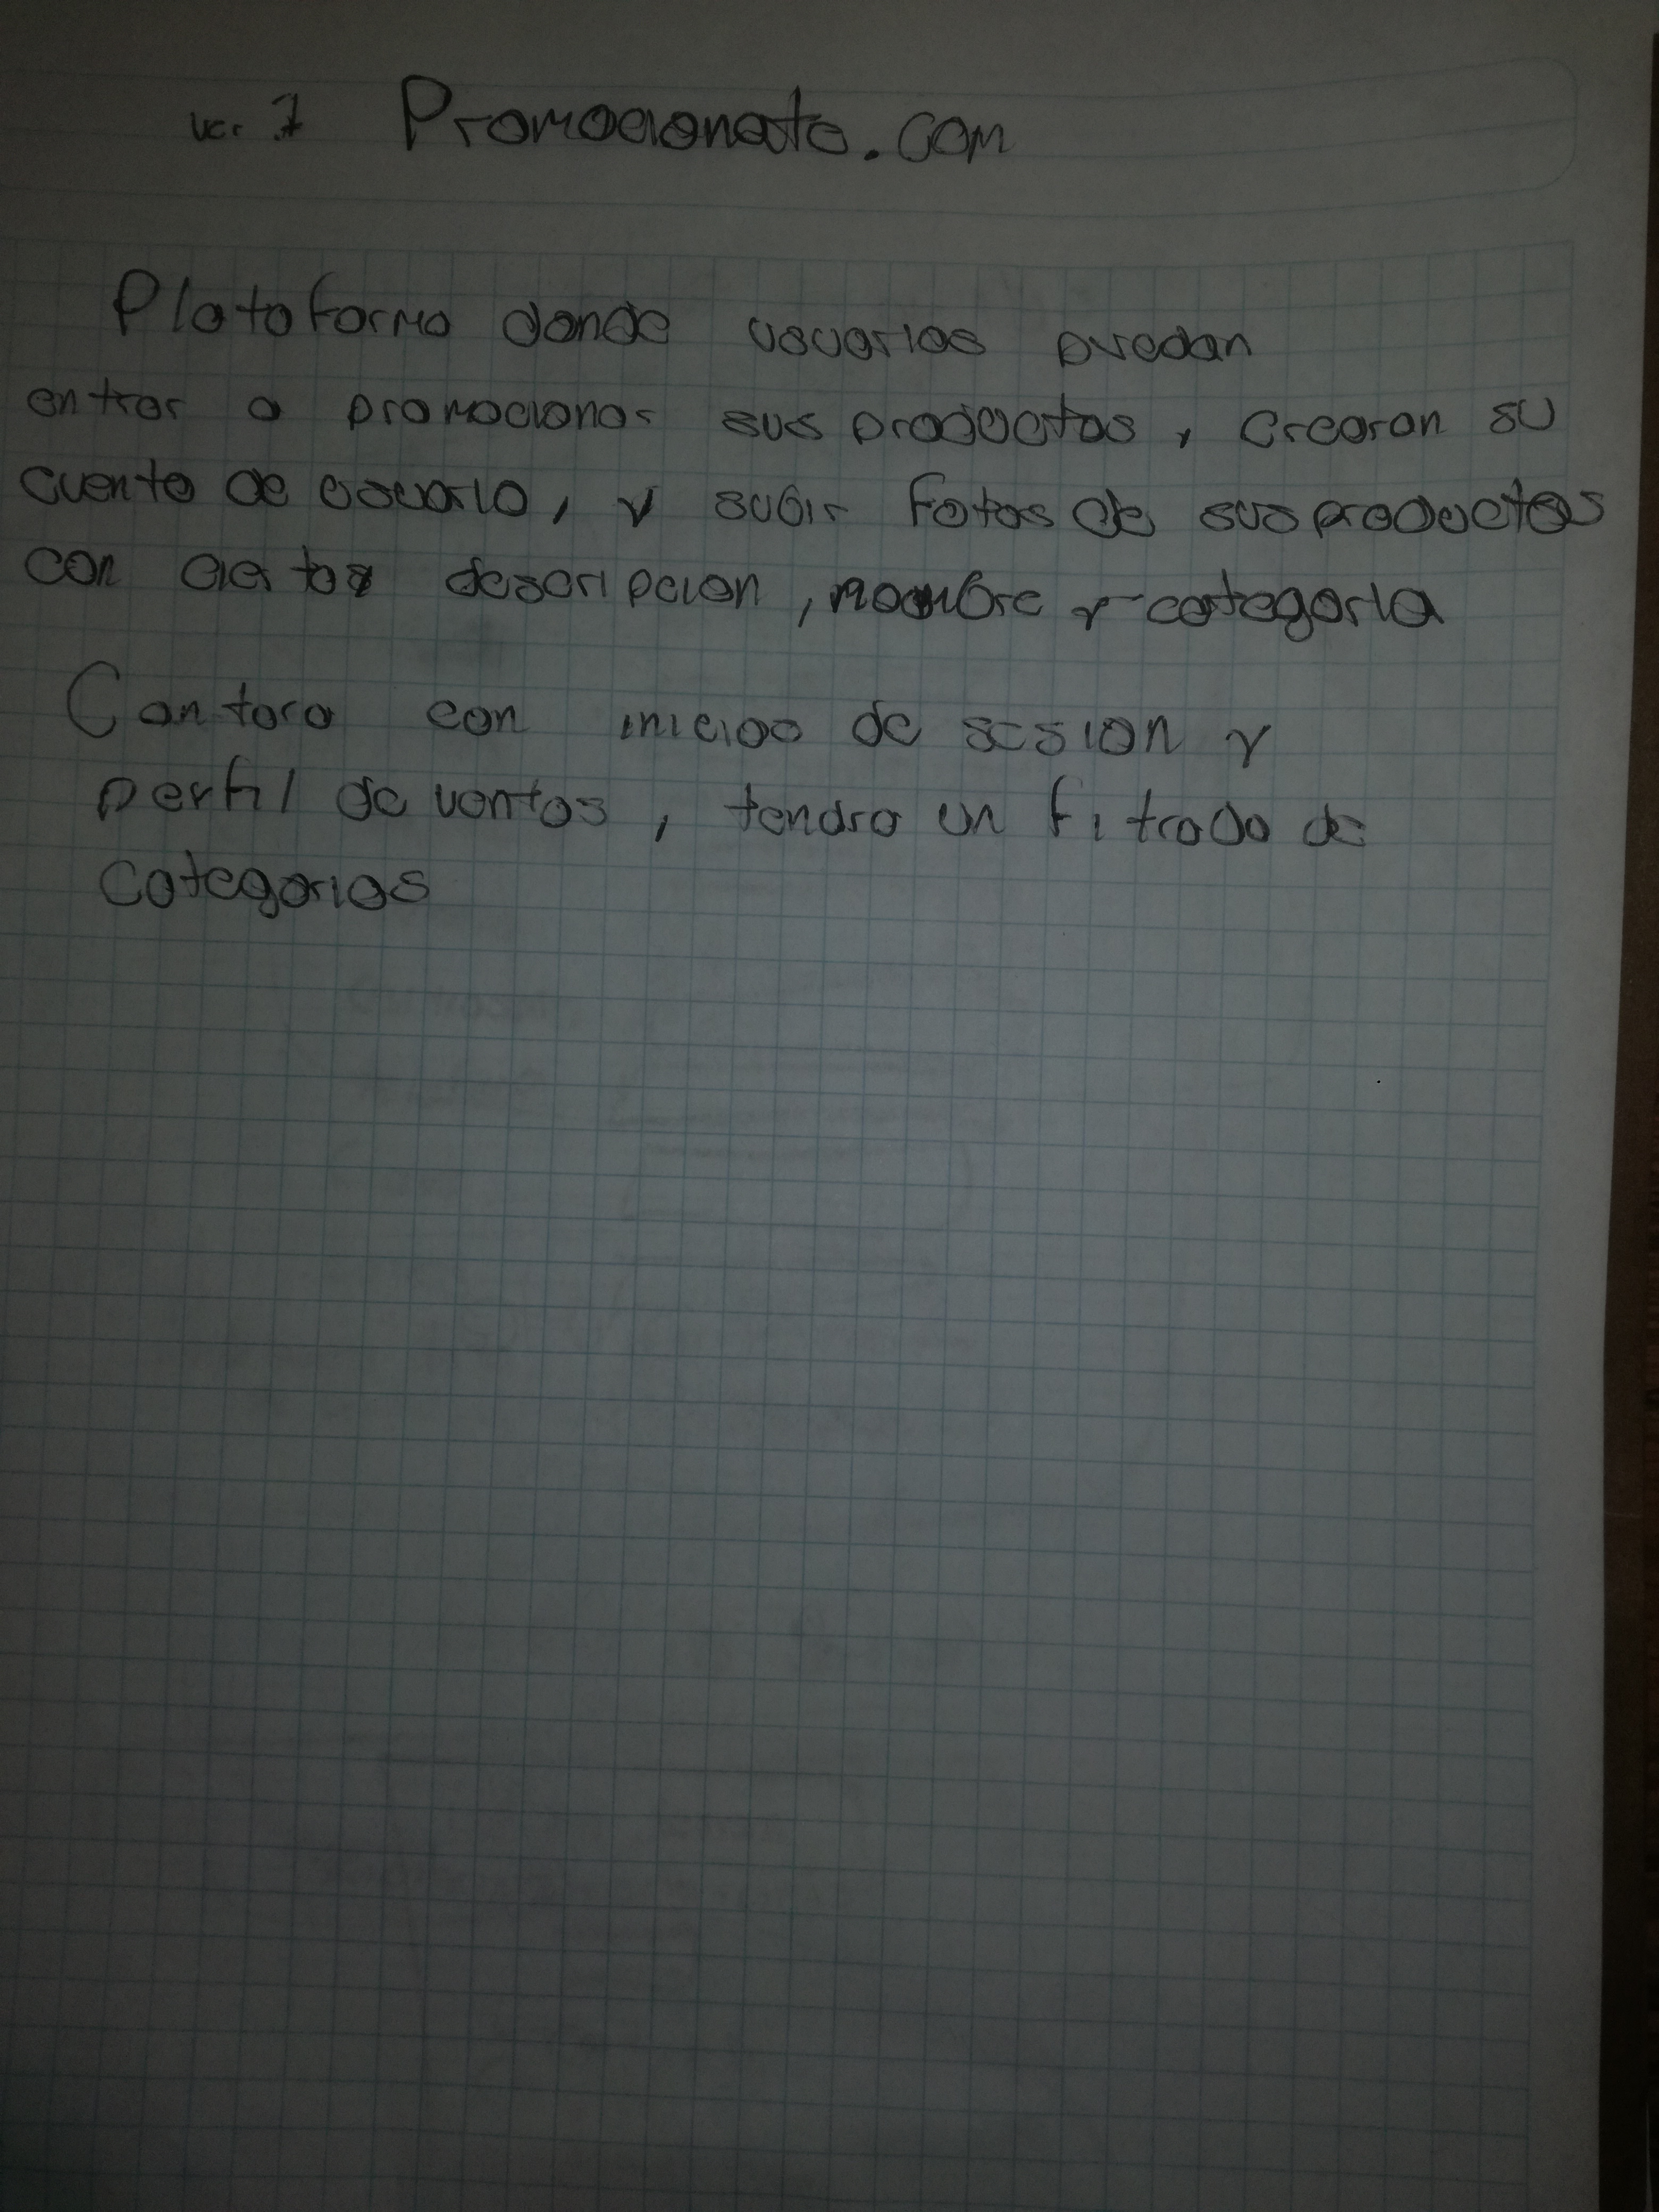 ver. 1 Promocionate.com
Plataforma donde usuarios puedan
entrar a promocionar sus productos, crearan su
cuenta de usuario, y subir fotos de sus productos
con cierta descripcion, nombre y categoria
Contara con inicio de sesion y
perfil de ventas, tendra un fitrado de
categorias